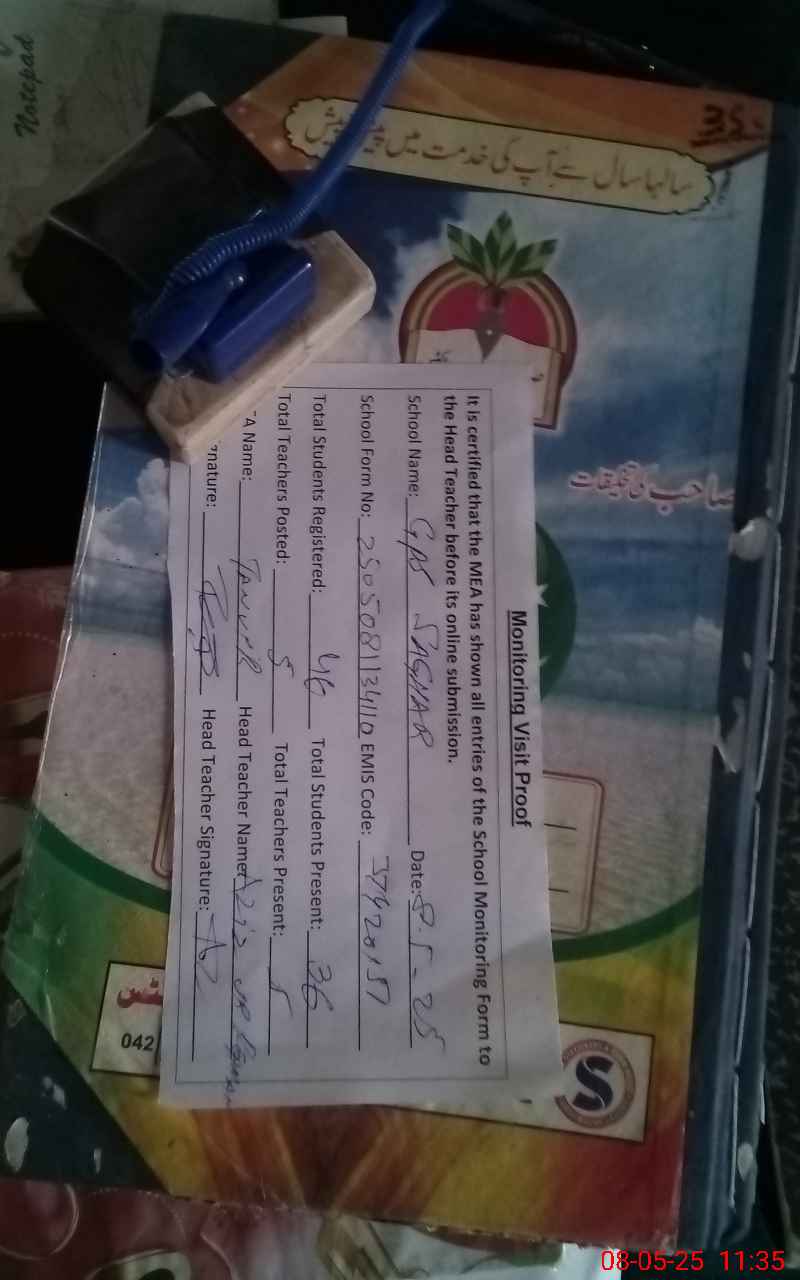 Notepad
35
سالہا سال سے آپ کی خدمت میں پیش پیش
صاحب کی تخلیقات
Monitoring Visit Proof
It is certified that the MEA has shown all entries of the School Monitoring Form to
the Head Teacher before its online submission.
School Name: GPS SAGHAR Date: 8-5-25
School Form No: 2505081134110 EMIS Code: 37420157
Total Students Registered: 46 Total Students Present: 36
Total Teachers Posted: 5 Total Teachers Present: 5
A Name: TANVIR Head Teacher Name: Aziz ur Rehman
nature: Head Teacher Signature:
042
S
08-05-25 11:35